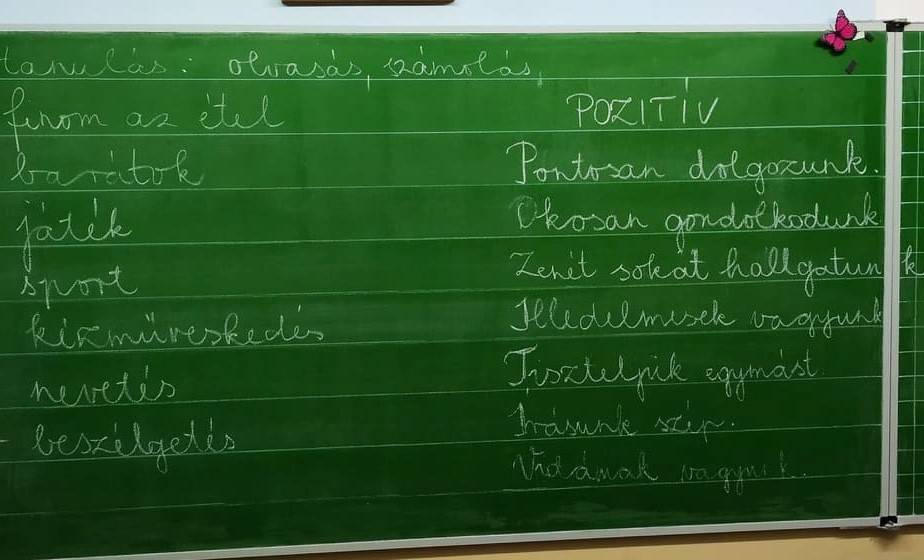 tanulás: olvasás, számolás,
finom az étel
barátok
játék
sport
kézműveskedés
nevetés
beszélgetés
POZITÍV
Pontosan dolgozunk.
Okosan gondolkodunk
Zenét sokat hallgatunk
Illedelmesek vagyunk
Tiszteljük egymást
Írásunk szép.
Vidámak vagyunk.